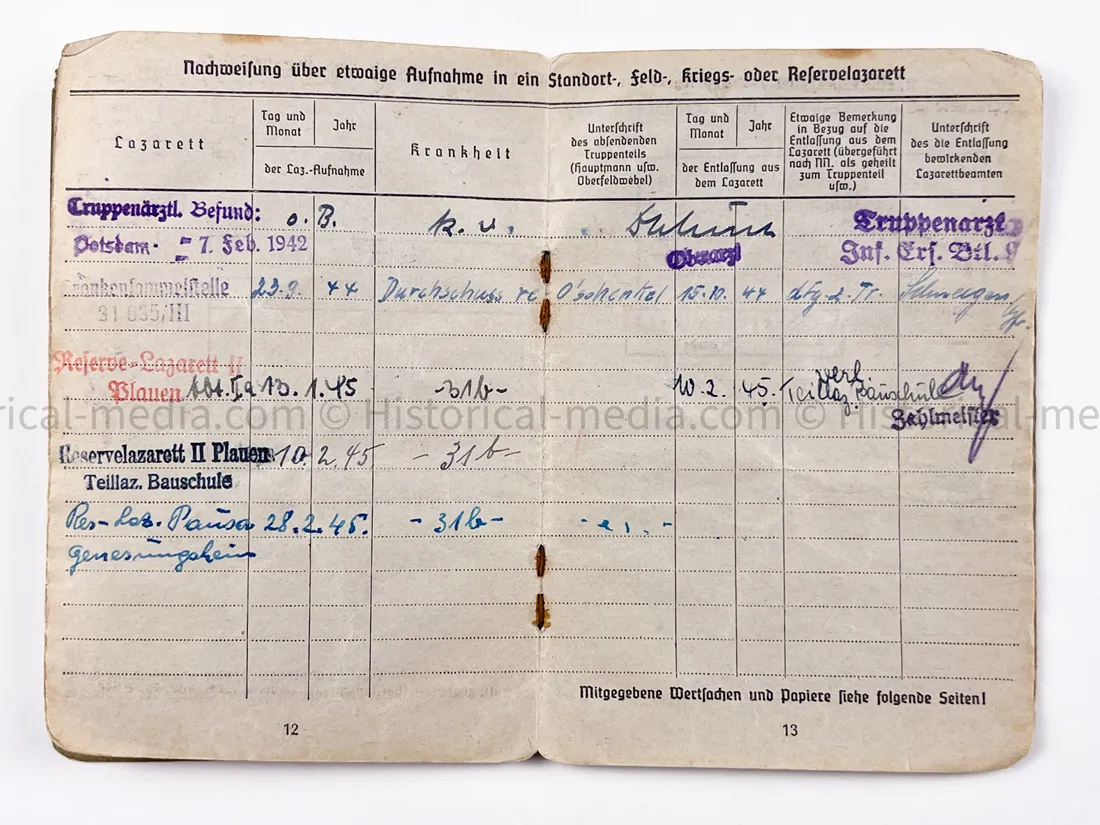 Nachweisung über etwaige Aufnahme in ein Standort-, Feld-, Kriegs- oder Reservelazarett
Lazarett
Tag und Monat
Jahr
der Laz.-Aufnahme
Krankheit
Unterschrift
des absendenden
Truppenteils
(Hauptmann usw.
Oberfeldwebel)
Tag und
Monat
Jahr
der Entlassung aus
dem Lazarett
Etwaige Bemerkung
in Bezug auf die
Entlassung aus dem
Lazarett (übergeführt
nach NN. als geheilt
zum Truppenteil
usw.)
Unterschrift
des die Entlassung
bewirkenden
Lazarettbeamten
Truppenärztl. Befund: o. B. k. v. Truppenarzt
Potsdam - 7. Feb. 1942 Inf. Ers. Btl. 9
Krankensammelstelle 23.9. 44 Durchschuss re O'schenkel 15.10. 44 dfg. z. Tr.
31 035/III
Reserve-Lazarett II
Plauen Abt. Ia 13. 1. 45 -31b- 10. 2. 45. verl. Teillaz. Bauschule
Zahlmeister
Historical-media.com © Historical-media.com © Historical-media.com
Reservelazarett II Plauen 10. 2. 45 - 31b -
Teillaz. Bauschule
Res-Laz. Pausa 28. 2. 45. - 31b -
Genesungsheim
Mitgegebene Wertsachen und Papiere siehe folgende Seiten!
12
13